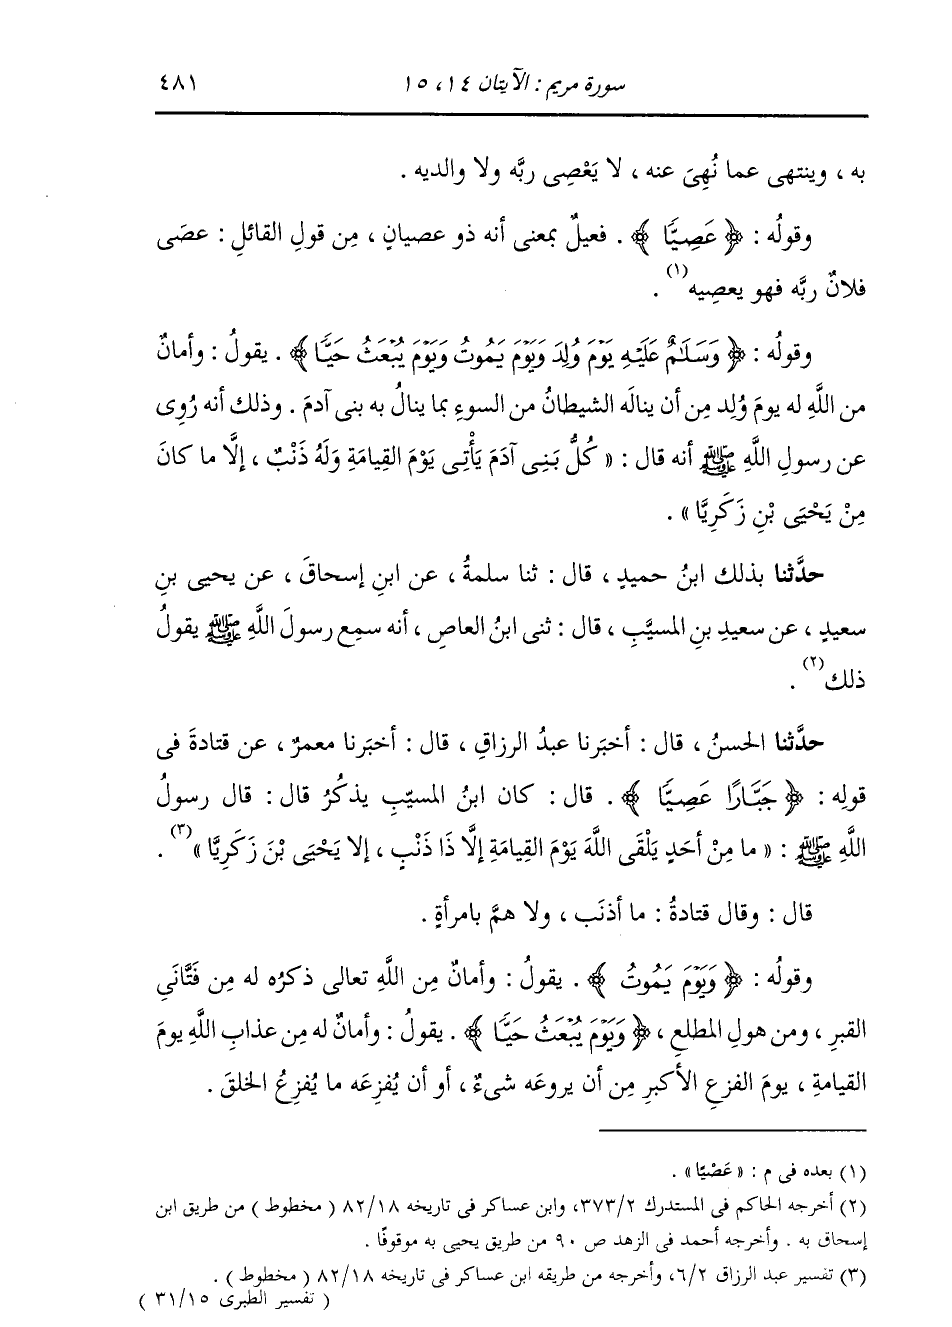 سورة مريم : الآيتان ١٤، ١٥ ٤٨١
به ، وينتهى عما نُهِىَ عنه ، لا يَعْصِى ربَّه ولا والديه .
وقولُه : ﴿ عَصِيًّا ﴾ . فعيلٌ بمعنى أنه ذو عصيانٍ ، مِن قولِ القائلِ : عصَى
فلانٌ ربَّه فهو يعصِيه(١) .
وقولُه : ﴿ وَسَلَٰمٌ عَلَيْهِ يَوْمَ وُلِدَ وَيَوْمَ يَمُوتُ وَيَوْمَ يُبْعَثُ حَيًّا ﴾ . يقولُ : وأمانٌ
من اللَّهِ له يومَ وُلِد مِن أن ينالَه الشيطانُ من السوءِ بما ينالُ به بنى آدمَ . وذلك أنه رُوِى
عن رسولِ اللَّهِ ﷺ أنه قال : « كُلُّ بَنِى آدَمَ يَأْتِى يَوْمَ القِيامَةِ وَلَهُ ذَنْبٌ ، إلَّا ما كانَ
مِنْ يَحْيَى بْنِ زَكَرِيَّا » .
حدَّثنا بذلك ابنُ حميدٍ ، قال : ثنا سلمةُ ، عن ابنِ إسحاقَ ، عن يحيى بنِ
سعيدٍ ، عن سعيدِ بنِ المسيَّبِ ، قال : ثنى ابنُ العاصِ ، أنه سمِع رسولَ اللَّهِ ﷺ يقولُ
ذلك(٢) .
حدَّثنا الحسنُ ، قال : أخبَرنا عبدُ الرزاقِ ، قال : أخبَرنا معمرٌ ، عن قتادةَ فى
قولِه : ﴿ جَبَّارًا عَصِيًّا ﴾ . قال : كان ابنُ المسيّبِ يذكُرُ قال : قال رسولُ
اللَّهِ ﷺ : « ما مِنْ أحَدٍ يَلْقَى اللَّهَ يَوْمَ القِيامَةِ إلَّا ذَا ذَنْبٍ ، إلا يَحْيَى بْنَ زَكَرِيَّا »(٣) .
قال : وقال قتادةُ : ما أذنَب ، ولا همَّ بامرأةٍ .
وقولُه : ﴿ وَيَوْمَ يَمُوتُ ﴾ . يقولُ : وأمانٌ مِن اللَّهِ تعالى ذكرُه له مِن فَتَّانَى
القبرِ ، ومن هولِ المطلعِ ، ﴿ وَيَوْمَ يُبْعَثُ حَيًّا ﴾ . يقولُ : وأمانٌ له مِن عذابِ اللَّهِ يومَ
القيامةِ ، يومَ الفزعِ الأكبرِ مِن أن يروعَه شىءٌ ، أو أن يُفزِعَه ما يُفزِعُ الخلقَ .
(١) بعده فى م : « عَصْيًا » .
(٢) أخرجه الحاكم فى المستدرك ٣٧٣/٢، وابن عساكر فى تاريخه ٨٢/١٨ ( مخطوط ) من طريق ابن
إسحاق به . وأخرجه أحمد فى الزهد ص ٩٠ من طريق يحيى به موقوفًا .
(٣) تفسير عبد الرزاق ٦/٢، وأخرجه من طريقه ابن عساكر فى تاريخه ٨٢/١٨ ( مخطوط ) .
( تفسير الطبرى ٣١/١٥ )